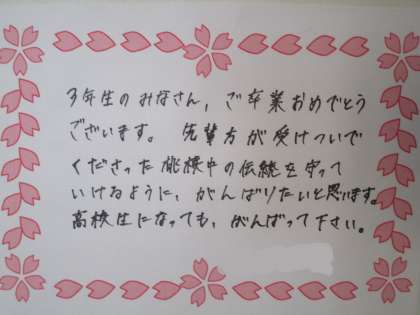 3年生のみなさん、ご卒業おめでとう
ございます。先輩方が受けついで
くださった桃検中の伝統を守って
いけるように、がんばりたいと思います。
高検生になっても、がんばって下さい。